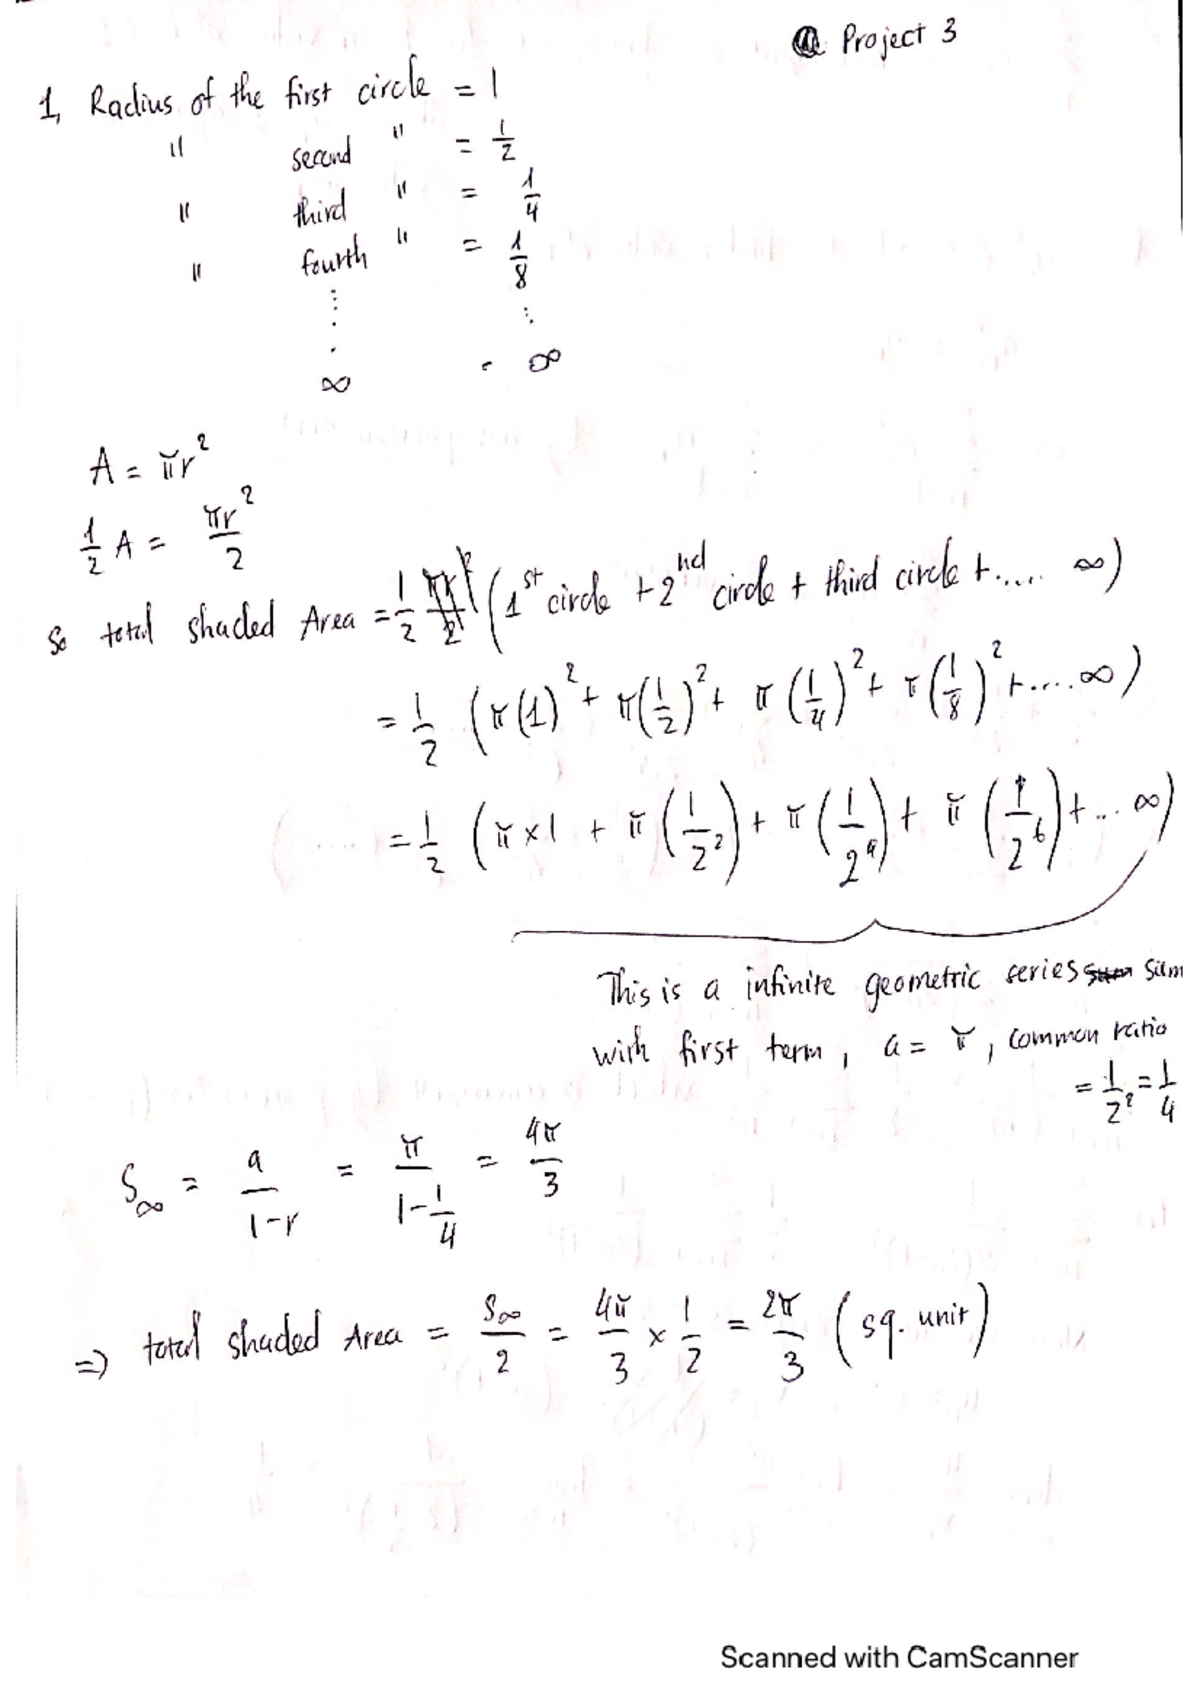 Project 3
1, Radius of the first circle = 1
" second " = 1/2
" third " = 1/4
" fourth " = 1/8
∞ = ∞
A = πr²
1/2 A = πr²/2
So total shaded Area = 1/2 (1st circle + 2nd circle + third circle + ..... ∞)
= 1/2 (π(1)² + π(1/2)² + π(1/4)² + π(1/8)² + .... ∞)
= 1/2 (π×1 + π(1/2²) + π(1/2⁴) + π(1/2⁶) + ... ∞)
This is a infinite geometric series sum
with first term, a = π, common ratio
= 1/2² = 1/4
S∞ = a/(1-r) = π/(1-1/4) = 4π/3
⇒ total shaded Area = S∞/2 = 4π/3 × 1/2 = 2π/3 (sq. unit)
Scanned with CamScanner